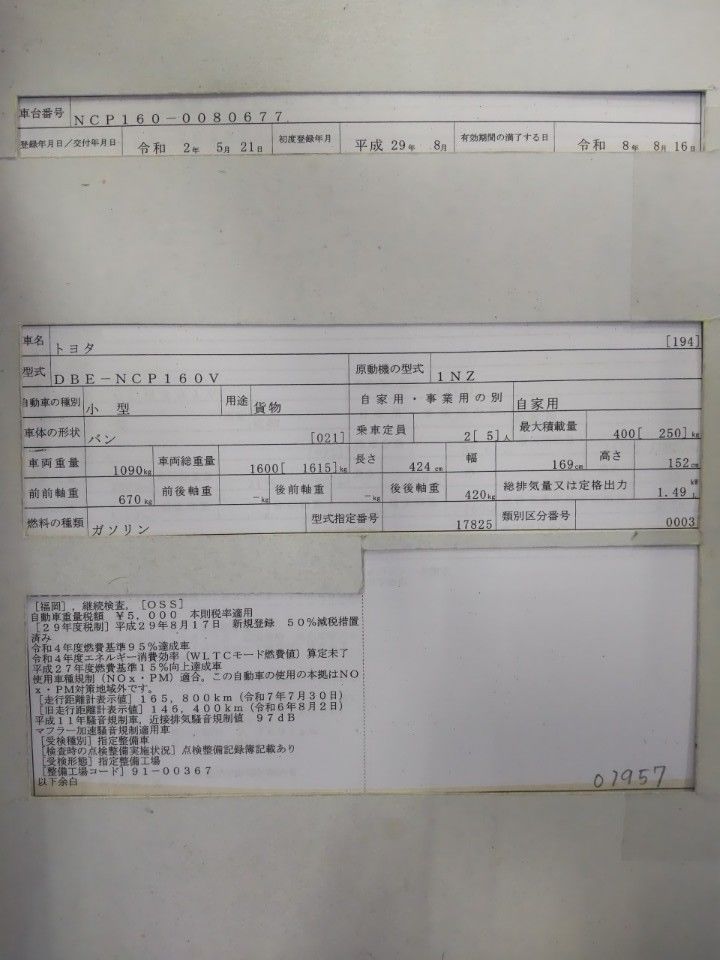 車台番号 NCP160-0080677
登録年月日/交付年月日 令和 2年 5月 21日 初度登録年月 平成 29年 8月 有効期間の満了する日 令和 8年 8月 16日
車名 トヨタ [194]
型式 DBE-NCP160V 原動機の型式 1NZ
自動車の種別 小型 用途 貨物 自家用・事業用の別 自家用
車体の形状 バン [021] 乗車定員 2[ 5]人 最大積載量 400[ 250]kg
車両重量 1090kg 車両総重量 1600[ 1615]kg 長さ 424cm 幅 169cm 高さ 152cm
前前軸重 670kg 前後軸重 -kg 後前軸重 -kg 後後軸重 420kg 総排気量又は定格出力 1.49 kW L
燃料の種類 ガソリン 型式指定番号 17825 類別区分番号 0003
[福岡],継続検査,[OSS]
自動車重量税額 ¥5,000 本則税率適用
[29年度税制]平成29年8月17日 新規登録 50%減税措置
済み
令和4年度燃費基準95%達成車
令和4年度エネルギー消費効率(WLTCモード燃費値)算定未了
平成27年度燃費基準15%向上達成車
使用車種規制(NOx・PM)適合。この自動車の使用の本拠はNO
x・PM対策地域外です。
[走行距離計表示値]165,800km(令和7年7月30日)
[旧走行距離計表示値]146,400km(令和6年8月2日)
平成11年騒音規制車、近接排気騒音規制値 97dB
マフラー加速騒音規制適用車
[受検種別]指定整備車
[検査時の点検整備実施状況]点検整備記録簿記載あり
[受検形態]指定整備工場
[整備工場コード]91-00367
以下余白
01957